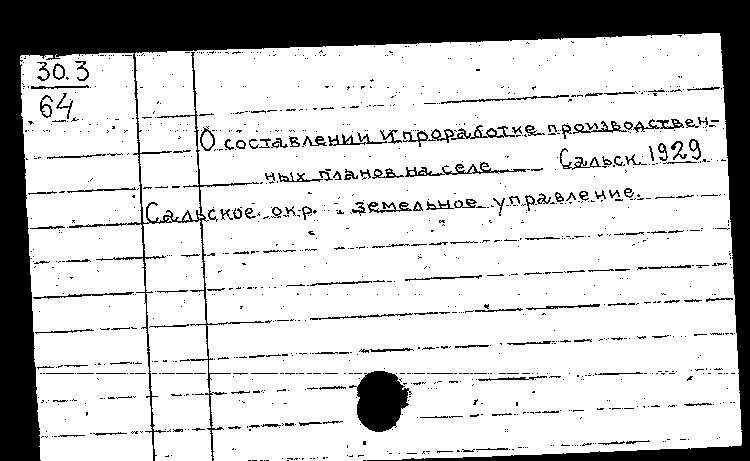 30.3
64
О составлении и проработке производствен-
ных планов на селе Сальск. 1929
Сальское окр. земельное управление.